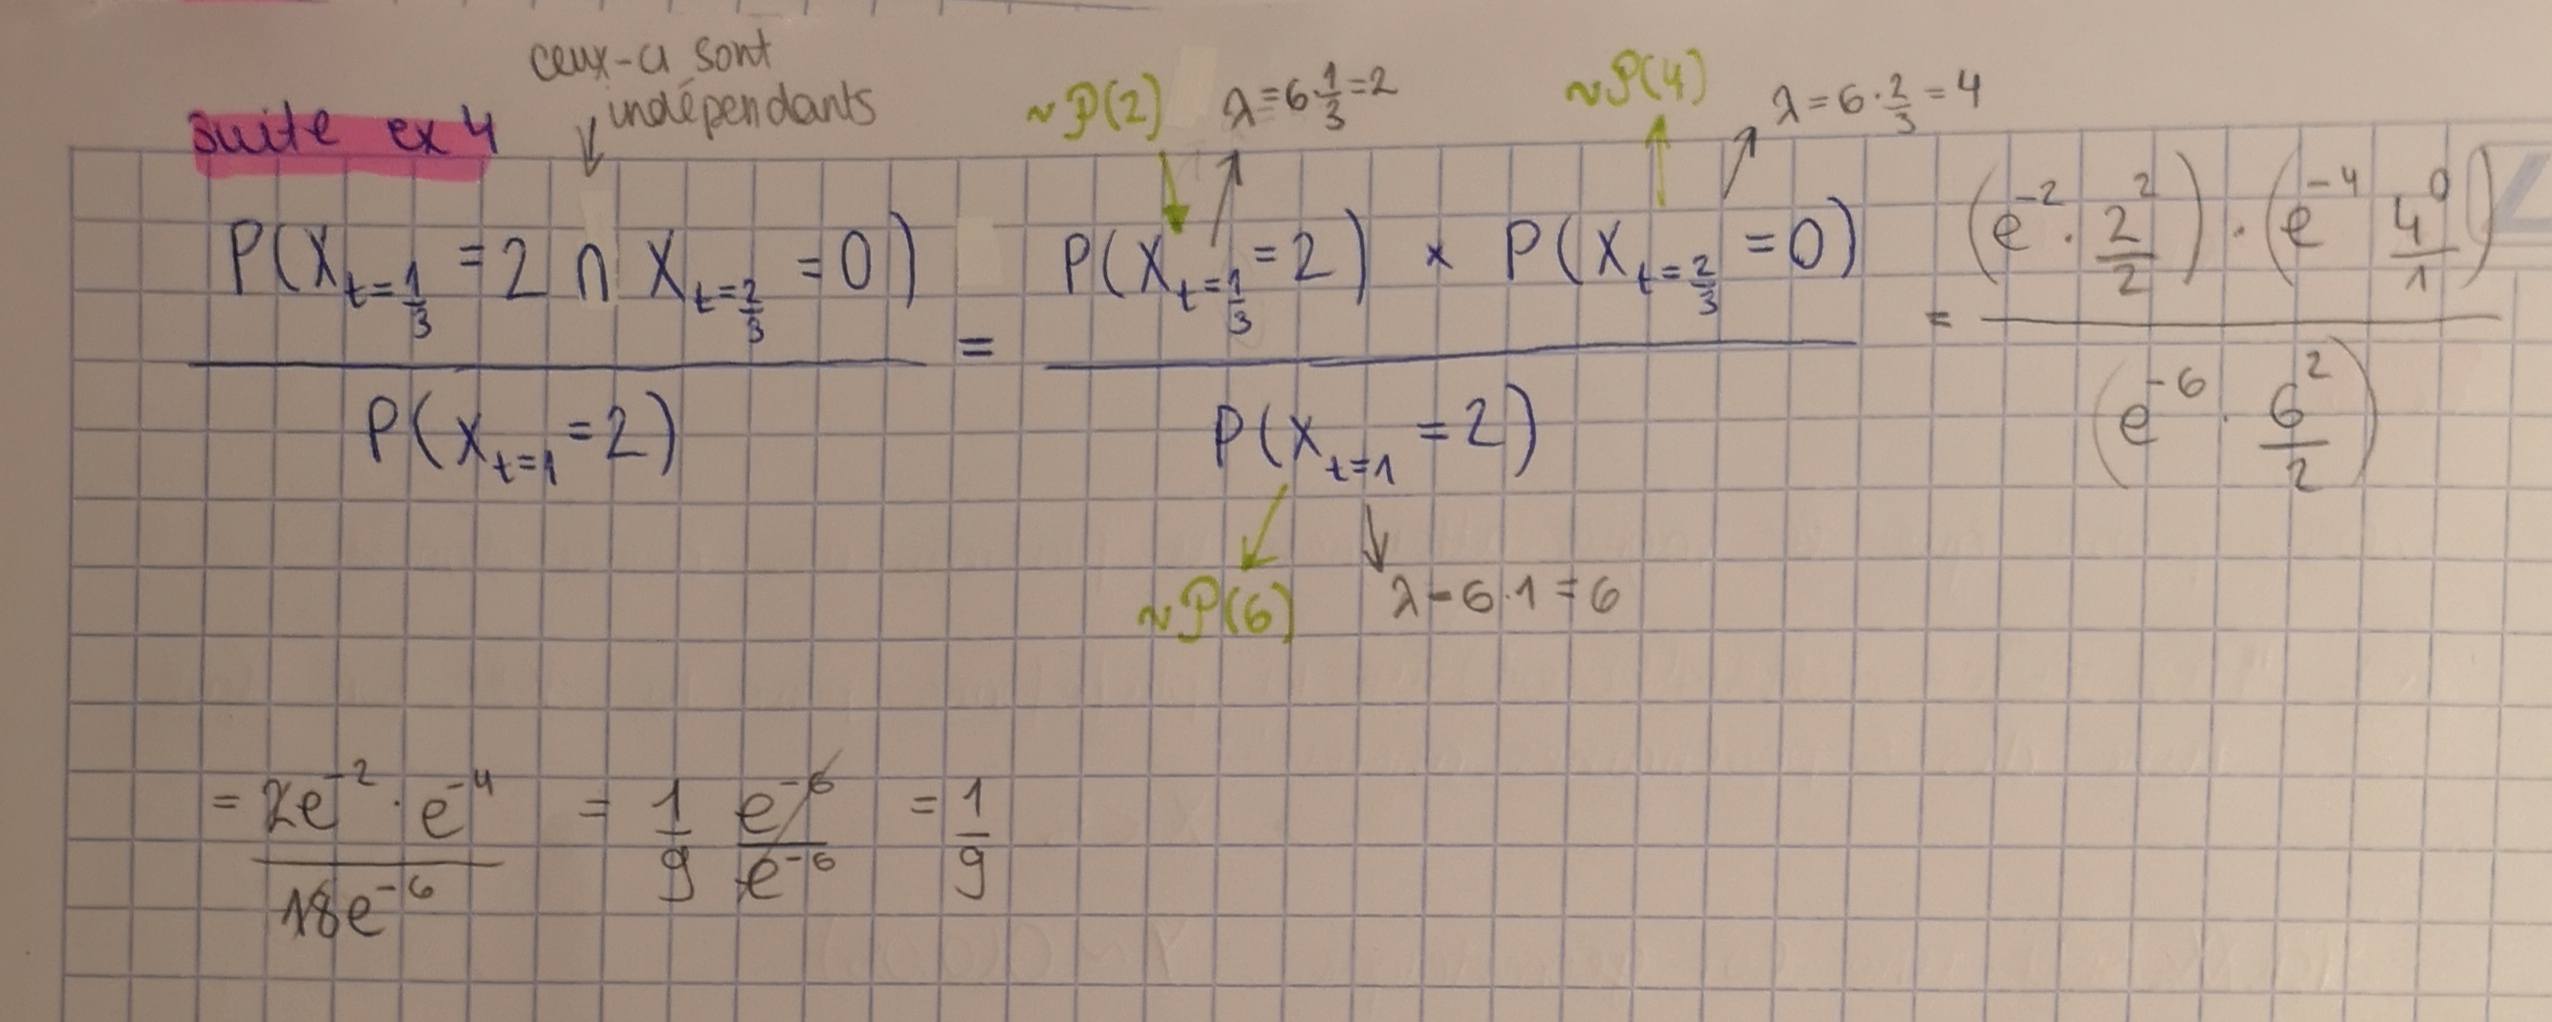 ceux-ci sont
indépendants
suite ex 4
~P(2) λ=6·1/3=2 ~P(4) λ=6·2/3=4
P(X_{t=1/3} = 2 ∩ X_{t=2/3} = 0) / P(X_{t=1} = 2) = P(X_{t=1/3} = 2) × P(X_{t=2/3} = 0) / P(X_{t=1} = 2) = (e^{-2} · 2^2/2) · (e^{-4} 4^0/1) / (e^{-6} · 6^2/2)
~P(6) λ=6·1=6
= 2e^{-2} · e^{-4} / 18e^{-6} = 1/9 e^{-6}/e^{-6} = 1/9